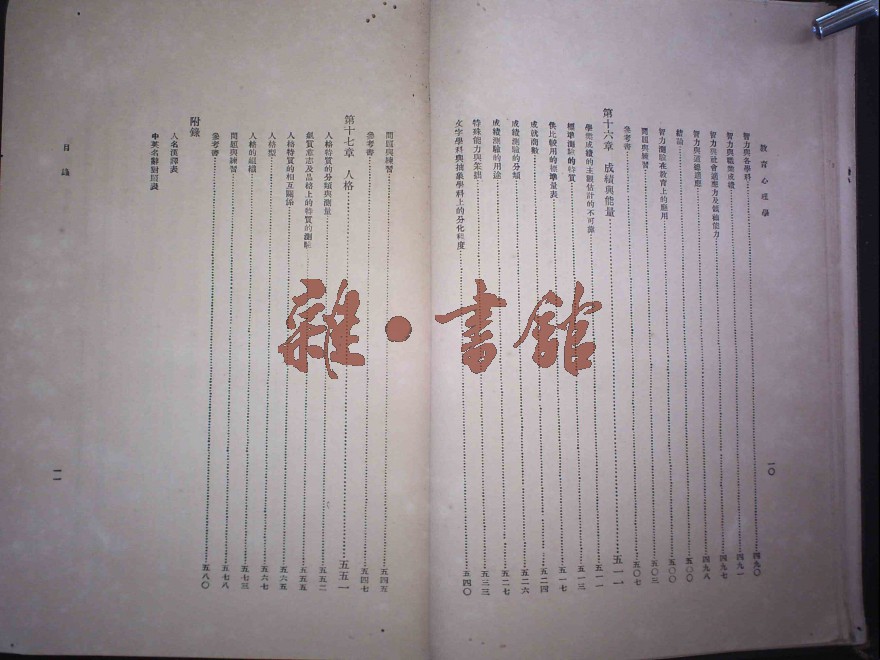 教育心理學
一〇
智力與各學科……四九〇
智力與職業成績……四九一
智力與社會適應力及領袖能力……四九七
智力與道德適應……四九八
結論……五〇〇
智力測驗在教育上的應用……五〇〇
問題與練習……五〇三
參考書……五〇七
第十六章 成績與能量……五一一
學業成績的主觀估計的不可靠……五一一
標準測驗的特質……五一三
供比較用的標準量表……五一七
成就商數……五二四
成績測驗的分類……五二六
成績測驗的用途……五二七
特殊能力與英雄……五三三
文字學科與抽象學科上的分化程度……五四〇
問題與練習……五四五
參考書……五四七
第十七章 人格……五五一
人格特質的分類與測量……五五二
氣質意志及品格上的特質的測驗……五五五
人格特質的相互關係……五六五
人格型……五六七
人格的組織……五七三
問題與練習……五七八
參考書……五八〇
附錄
人名漢譯表
中英名辭對照表
目錄
一一
雜·書館